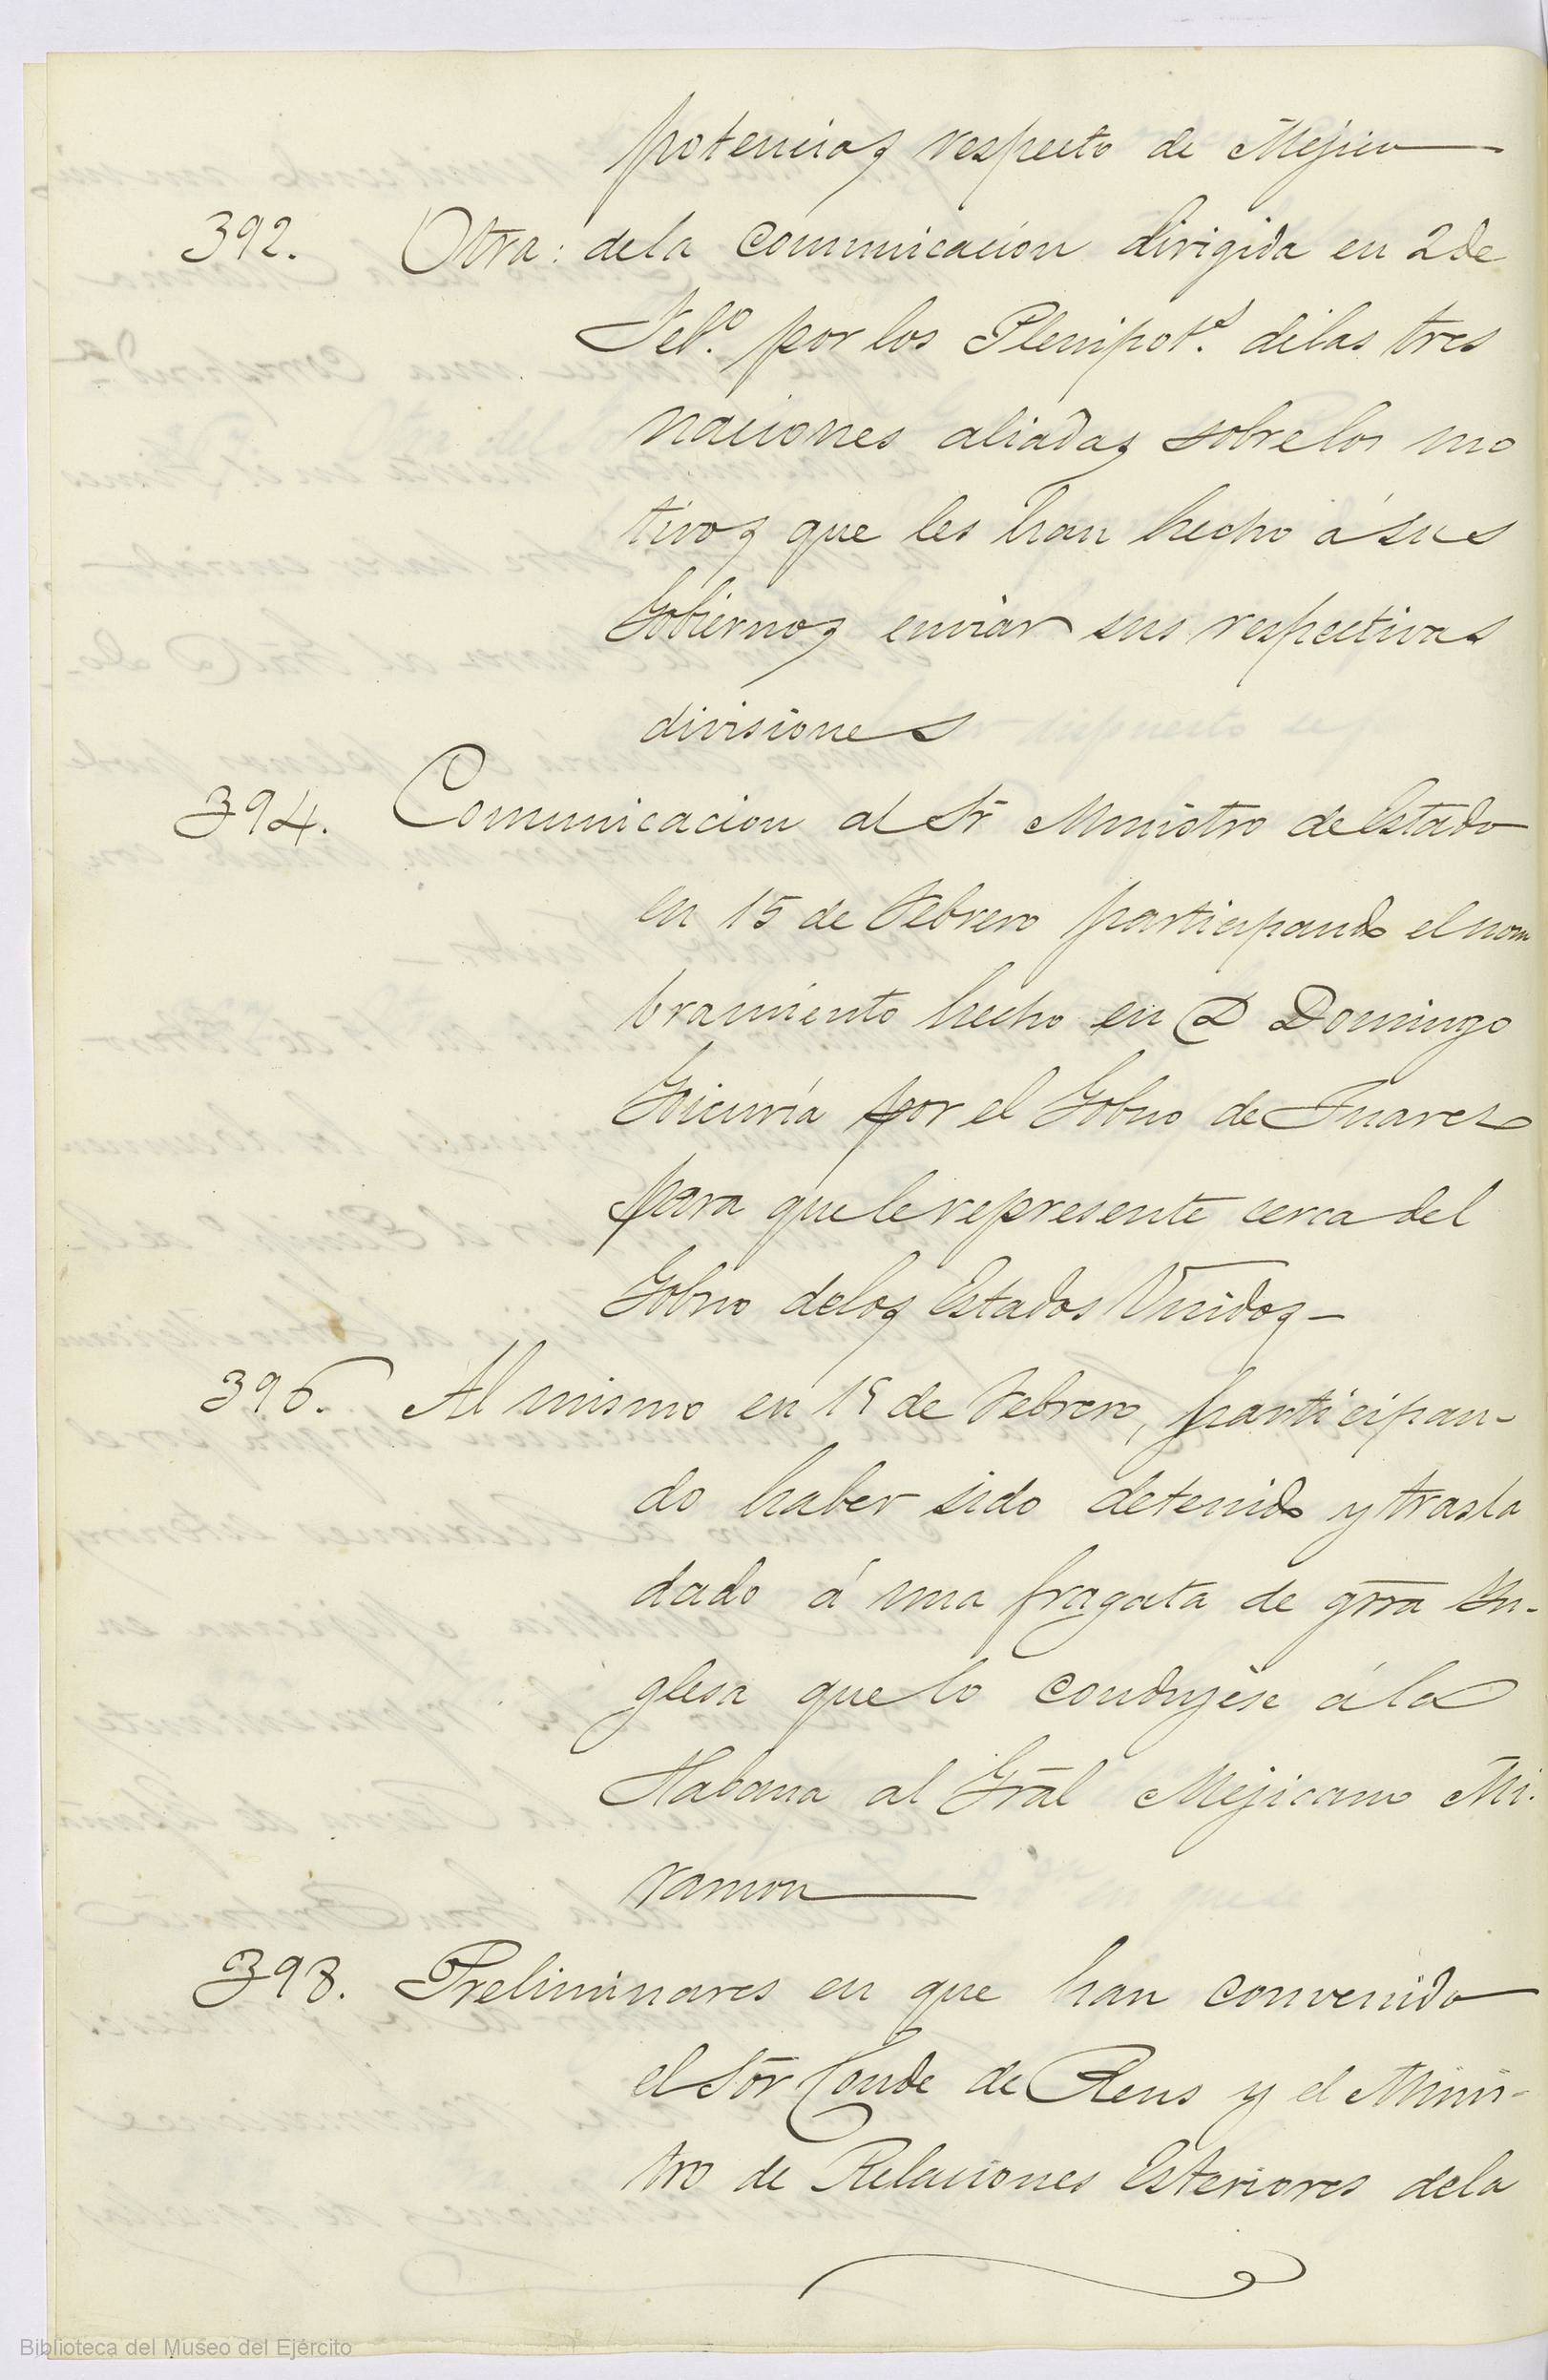 potencias respecto de Mejico
392. Otra: dela comunicacion dirigida en 2 de
Feb.º por los Plenipot.s delas tres
naciones aliadas sobre los mo
tivos que les han hecho á sus
Gobiernos enviar sus respectivas
divisiones
394. Comunicacion al Sr Ministro de Estado
en 15 de Febrero participando el nom
bramiento hecho en D Domingo
Goicuría por el Gobno de Juares
para que le represente cerca del
Gobno delos Estados Unidos-
396. Al mismo en 19 de Febrero, participan-
do haber sido detenido y trasla
dado á una fragata de grra In-
glesa que lo condujese á la
Habana al Gral Mejicano Mi-
ramon
398. Preliminares en que han convenido
el Sor Conde de Reus y el Minis-
tro de Relaciones Esteriores dela
Biblioteca del Museo del Ejército